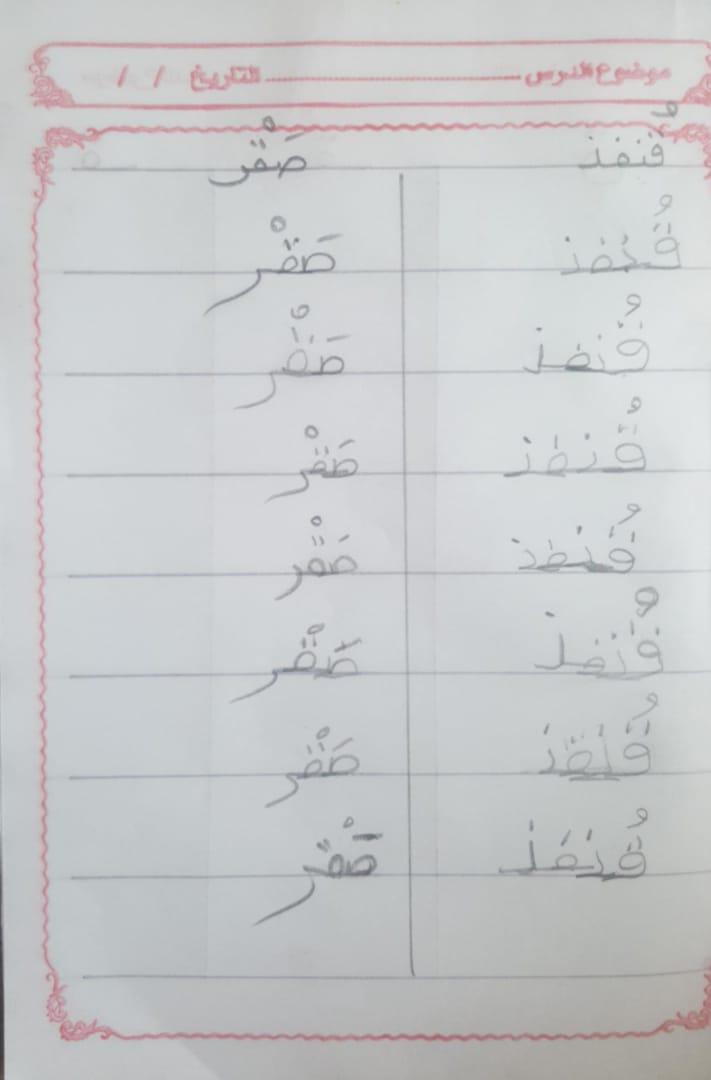 موضوع الدرس ........................ التاريخ / /
قُنفذ صَقْر
قُنفذ صَقْر
قُنفذ صَقْر
قُنفذ صَقْر
قُنفذ صَقْر
قُنفذ صَقْر
قُنفذ صَقْر
قُنفذ صَقْر